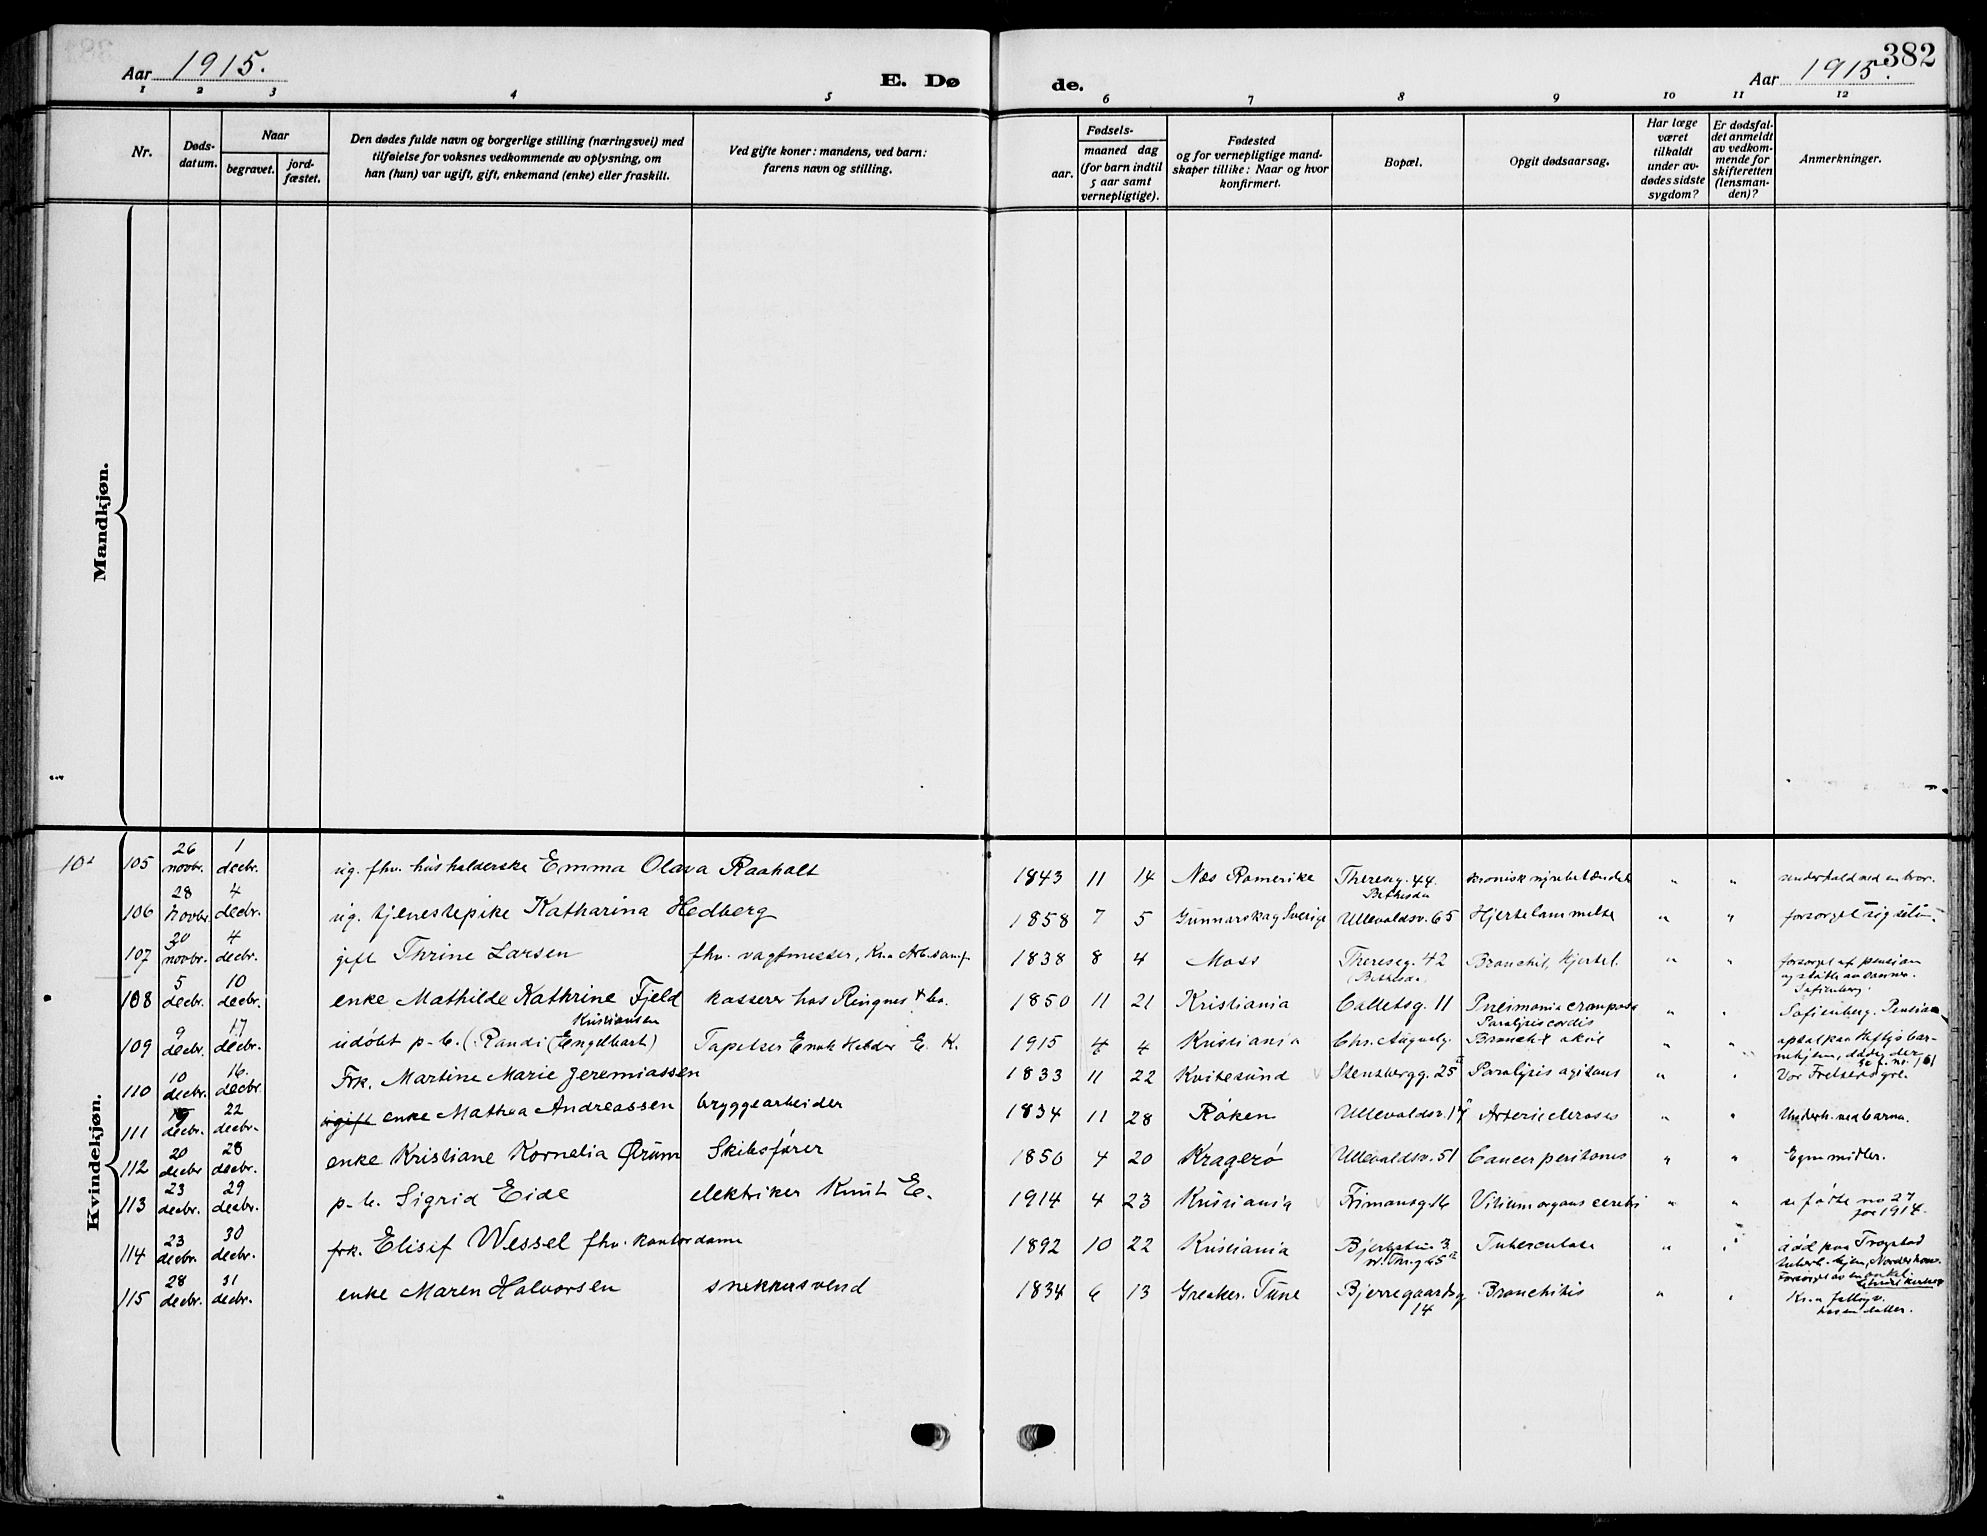 Aar 1915.
E. Dø
de.
Aar 1915.
382
1 2 3 4 5 6 7 8 9 10 11 12
Nr.
Døds-
datum.
Naar
begravet.
jord-
fæstet.
Den dødes fulde navn og borgerlige stilling (næringsvei) med
tilføielse for voksnes vedkommende av oplysning, om
han (hun) var ugift, gift, enkemand (enke) eller fraskilt.
Ved gifte koner: mandens, ved barn:
farens navn og stilling.
Fødsels-
aar.
maaned dag
(for barn indtil
5 aar samt
vernepligtige).
Fødested
og for vernepligtige mand-
skaper tillike: Naar og hvor
konfirmert.
Bopæl.
Opgit dødsaarsag.
Har læge
været
tilkaldt
under av-
dødes sidste
sygdom?
Er dødsfal-
det anmeldt
av vedkom-
mende for
skifteretten
(lensman-
den)?
Anmerkninger.
Mandkjøn.
Kvindekjøn.
105 26 novbr. 1 decbr. ug. fhv. husholderske Emma Olava Raaholt 1843 11 14 Næs Romerike Theresg. 44. Bethesda kronisk nyrebetændelse " " underhold ved en bror.
106 28 novbr. 4 decbr. ug. tjenestepike Katharina Hedberg 1858 7 5 Gunnarskog Sverige Ullevoldsv. 65 Hjertelammelse " " forsørget sig selv.
107 30 novbr. 4 decbr. gift Thrine Larsen fhv. vagtmester, Kr.a Arb.samf. 1838 8 4 Moss Theresg. 42 Bethesda Bronchit, Hjertef. " " forsørget af pension og støtte av sønner.
108 5 decbr. 10 decbr. enke Mathilde Kathrine Fjeld kasserer hos Ringnes & Co. 1850 11 21 Kristiania Calletsg. 11 Pneimonia crouposa Paralysis cordis " " Sofienberg. Pension
109 9 decbr. 17 decbr. udøbt p.b. (Randi (Engelhart) Kristiansen Tapetser E. K. 1915 4 4 Kristiania Chr. Augustg. Bronchit akut " "
110 10 decbr. 16. decbr. Frk. Martine Marie Jeremiassen 1833 11 22 Kvitesund Stensbergg. 25 Paralysis agitans " " Vor Frelsers
111 decbr. 22 decbr. ugift enke Mathea Andreassen bryggearbeider 1834 11 28 Røken Ullevoldsv. 14 Arteriesclerosis " " Underh. ved barna.
112 20 decbr. 28 decbr. enke Kristiane Kornelia Ørum Skibsfører 1850 4 20 Kragerø Ullevoldsv. 51 Cancer peritones " " Egne midler.
113 23 decbr. 29 decbr. p.b. Sigrid Eide elektriker Knut E. 1914 4 23 Kristiania Frimansg. 16 Vitium organs cerebri " " se fødte no 27 for 1914.
114 23 decbr. 30 decbr. frk. Elisif Wessel fhv. kontordame 1892 10 22 Kristiania Tuberculose " " død paa Trogstad
115 28 decbr. 31 decbr. enke Maren Halvorsen snekkersvend 1834 6 13 Greaker. Tune Bjerregaardsg 14 Bronchitis " "